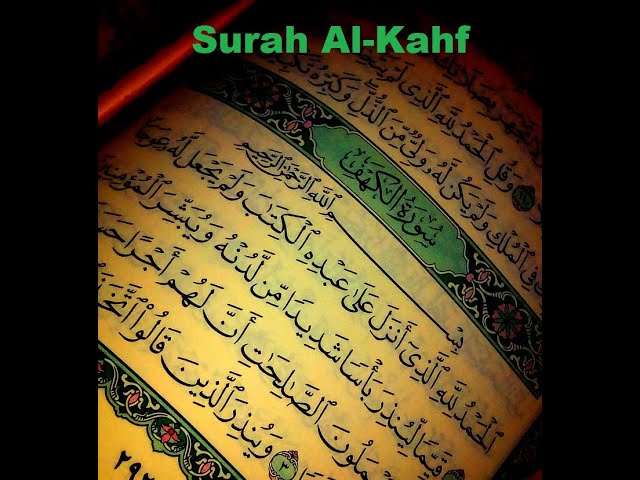 Surah Al-Kahf
وَقُلِ ٱلْحَمْدُ لِلَّهِ ٱلَّذِى لَمْ يَتَّخِذْ
فِى ٱلْمُلْكِ وَلَمْ يَكُن لَّهُۥ وَلِىٌّ مِّنَ ٱلذُّلِّ وَكَبِّرْهُ
سُورَةُ الكَهْفِ
بِسْمِ ٱللَّهِ ٱلرَّحْمَٰنِ ٱلرَّحِيمِ
ٱلْحَمْدُ لِلَّهِ ٱلَّذِىٓ أَنزَلَ عَلَىٰ عَبْدِهِ ٱلْكِتَٰبَ وَلَمْ يَجْعَل لَّهُۥ عِوَجَا
قَيِّمًا لِّيُنذِرَ بَأْسًا شَدِيدًا مِّن لَّدُنْهُ وَيُبَشِّرَ ٱلْمُؤْمِنِ
مَلُونَ ٱلصَّٰلِحَٰتِ أَنَّ لَهُمْ أَجْرًا حَسَ
٢ وَيُنذِرَ ٱلَّذِينَ قَالُوا۟ ٱتَّخَذَ
٢٩